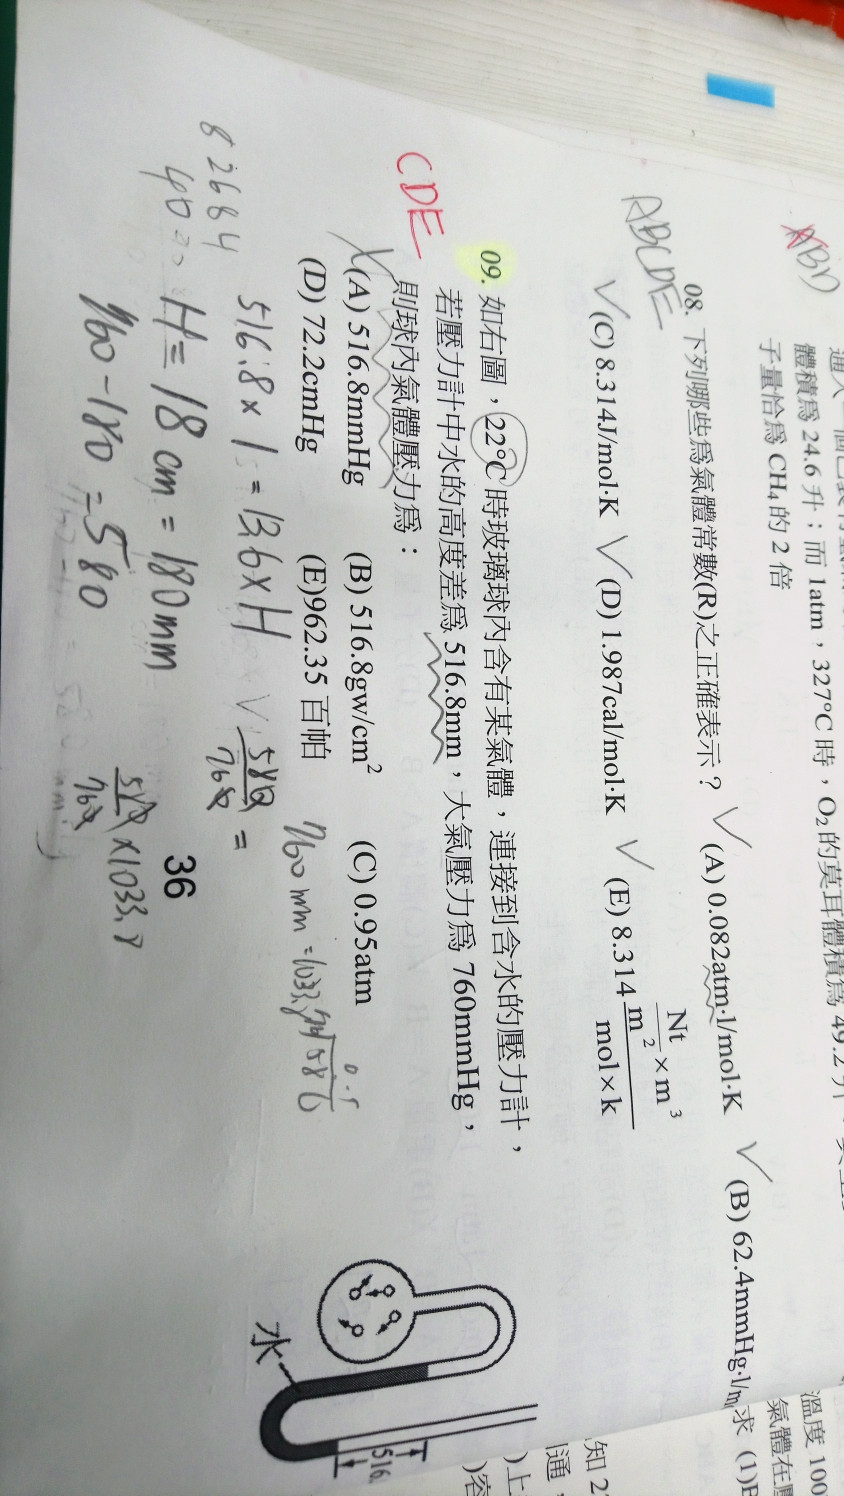 體積為 24.6 升；而 1atm，327°C 時，O₂的莫耳體積為 49.2 升
子量恰為 CH₄的 2 倍
ABD
ABCDE
08. 下列哪些為氣體常數(R)之正確表示？ (A) 0.082atm·l/mol·K (B) 62.4mmHg·l/m
(C) 8.314J/mol·K (D) 1.987cal/mol·K (E) 8.314 Nt/m² × m³ / mol×k
CDE
09. 如右圖，22°C 時玻璃球內含有某氣體，連接到含水的壓力計，
若壓力計中水的高度差為 516.8mm，大氣壓力為 760mmHg，
則球內氣體壓力為：
(A) 516.8mmHg (B) 516.8gw/cm² (C) 0.95atm
(D) 72.2cmHg (E)962.35 百帕
760 mm = 1033.
516.8 × 1 = 13.6 × H
580/760 =
H = 18 cm = 180 mm
760 - 180 = 580
82684
36
水
516.
求 (1)
溫度 100
氣體在
知 2
通，
)上
)容